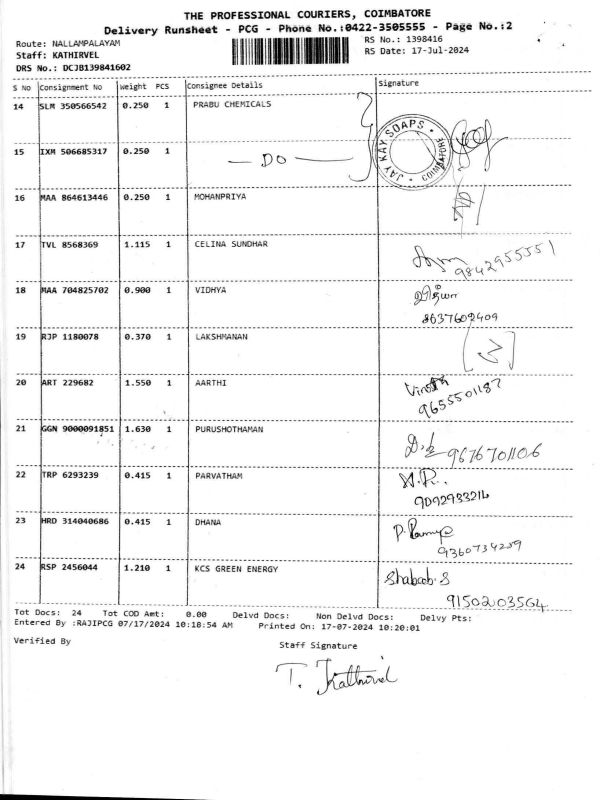 THE PROFESSIONAL COURIERS, COIMBATORE
Delivery Runsheet - PCG - Phone No.:0422-3505555 - Page No.:2
Route: NALLAMPALAYAM
RS No.: 1398416
Staff: KATHIRVEL
RS Date: 17-Jul-2024
DRS No.: DCJB139841602
S No Consignment No Weight PCS Consignee Details Signature
14 SLM 350566542 0.250 1 PRABU CHEMICALS
JAY KAY SOAPS • COIMBATORE •
15 IXM 506685317 0.250 1 — DO —
16 MAA 864613446 0.250 1 MOHANPRIYA
17 TVL 8568369 1.115 1 CELINA SUNDHAR
9842955551
18 MAA 704825702 0.900 1 VIDHYA வித்யா
8637602409
19 RJP 1180078 0.370 1 LAKSHMANAN
20 ART 229682 1.550 1 AARTHI
9655501187
21 GGN 9000091851 1.630 1 PURUSHOTHAMAN
9676701106
22 TRP 6293239 0.415 1 PARVATHAM
9092933216
23 HRD 314040686 0.415 1 DHANA
9360734259
24 RSP 2456044 1.210 1 KCS GREEN ENERGY Shabaab.S
9150203564
Tot Docs: 24 Tot COD Amt: 0.00 Delvd Docs: Non Delvd Docs: Delvy Pts:
Entered By :RAJIPCG 07/17/2024 10:18:54 AM Printed On: 17-07-2024 10:20:01
Verified By
Staff Signature
T. Kathirvel